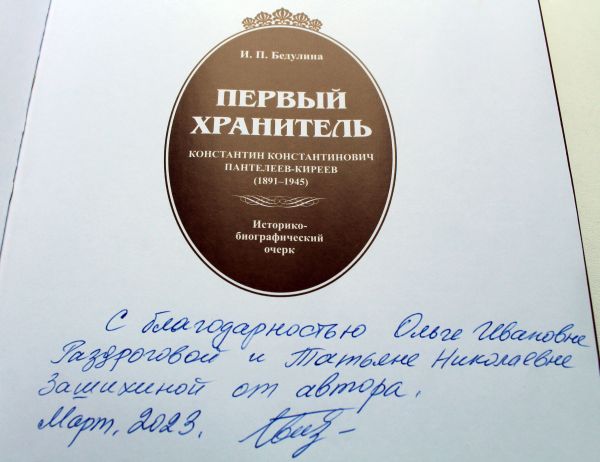 И. П. Бедулина
ПЕРВЫЙ
ХРАНИТЕЛЬ
КОНСТАНТИН КОНСТАНТИНОВИЧ
ПАНТЕЛЕЕВ-КИРЕЕВ
(1891–1945)
Историко-
биографический
очерк
С благодарностью Ольге Ивановне
Раздроговой и Татьяне Николаевне
Зашихиной от автора.
Март, 2023.